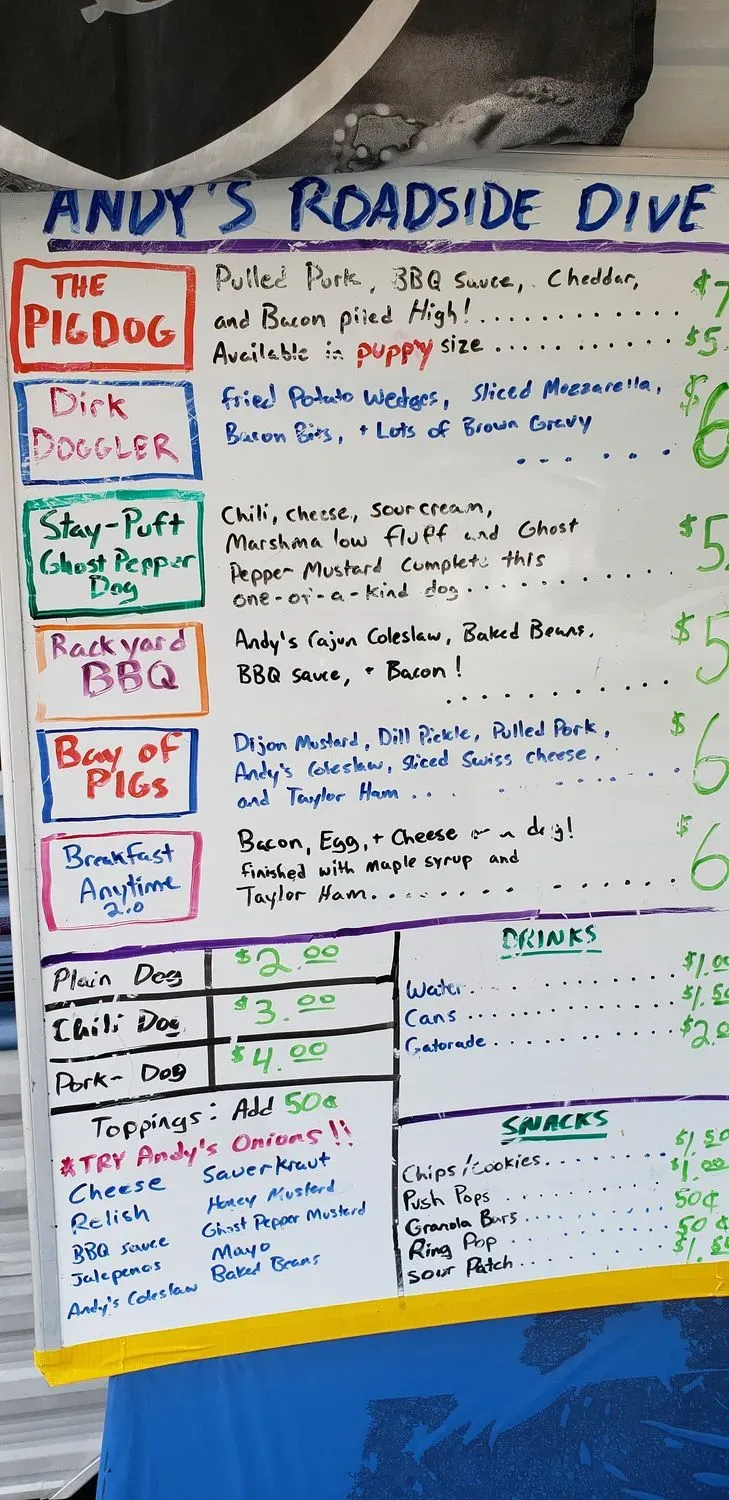 ANDY'S ROADSIDE DIVE
THE
PIGDOG
Pulled Pork, BBQ sauce, Cheddar,
and Bacon piled High!............ $7
Available in puppy size .......... $5
Dirk
DOGGLER
Fried Potato Wedges, Sliced Mozzarella,
Bacon Bits, + Lots of Brown Gravy
.... $6
Stay-Puft
Ghost Pepper
Dog
Chili, cheese, sour cream,
Marshmallow fluff and Ghost
Pepper Mustard Complete this
one-of-a-kind dog........... $5
Backyard
BBQ
Andy's Cajun Coleslaw, Baked Beans,
BBQ sauce, + Bacon!
........... $5
Bay of
PIGs
Dijon Mustard, Dill Pickle, Pulled Pork,
Andy's Coleslaw, Sliced Swiss cheese,
and Taylor Ham ........... $6
Breakfast
Anytime
2.0
Bacon, Egg, + Cheese on a dog!
finished with Maple syrup and
Taylor Ham............ $6
Plain Dog $2.00
Chili Dog $3.00
Pork-Dog $4.00
Toppings: Add 50¢
*TRY Andy's Onions!!
Cheese
Relish
BBQ sauce
Jalepenos
Andy's Coleslaw
Sauerkraut
Honey Mustard
Ghost Pepper Mustard
Mayo
Baked Beans
DRINKS
Water........... $1.00
Cans ........... $1.50
Gatorade........... $2.0
SNACKS
Chips/Cookies........ $1.50
Push Pops ........ $1.00
Granola Bars........ 50¢
Ring Pop ........ 50¢
Sour Patch........ $1.50